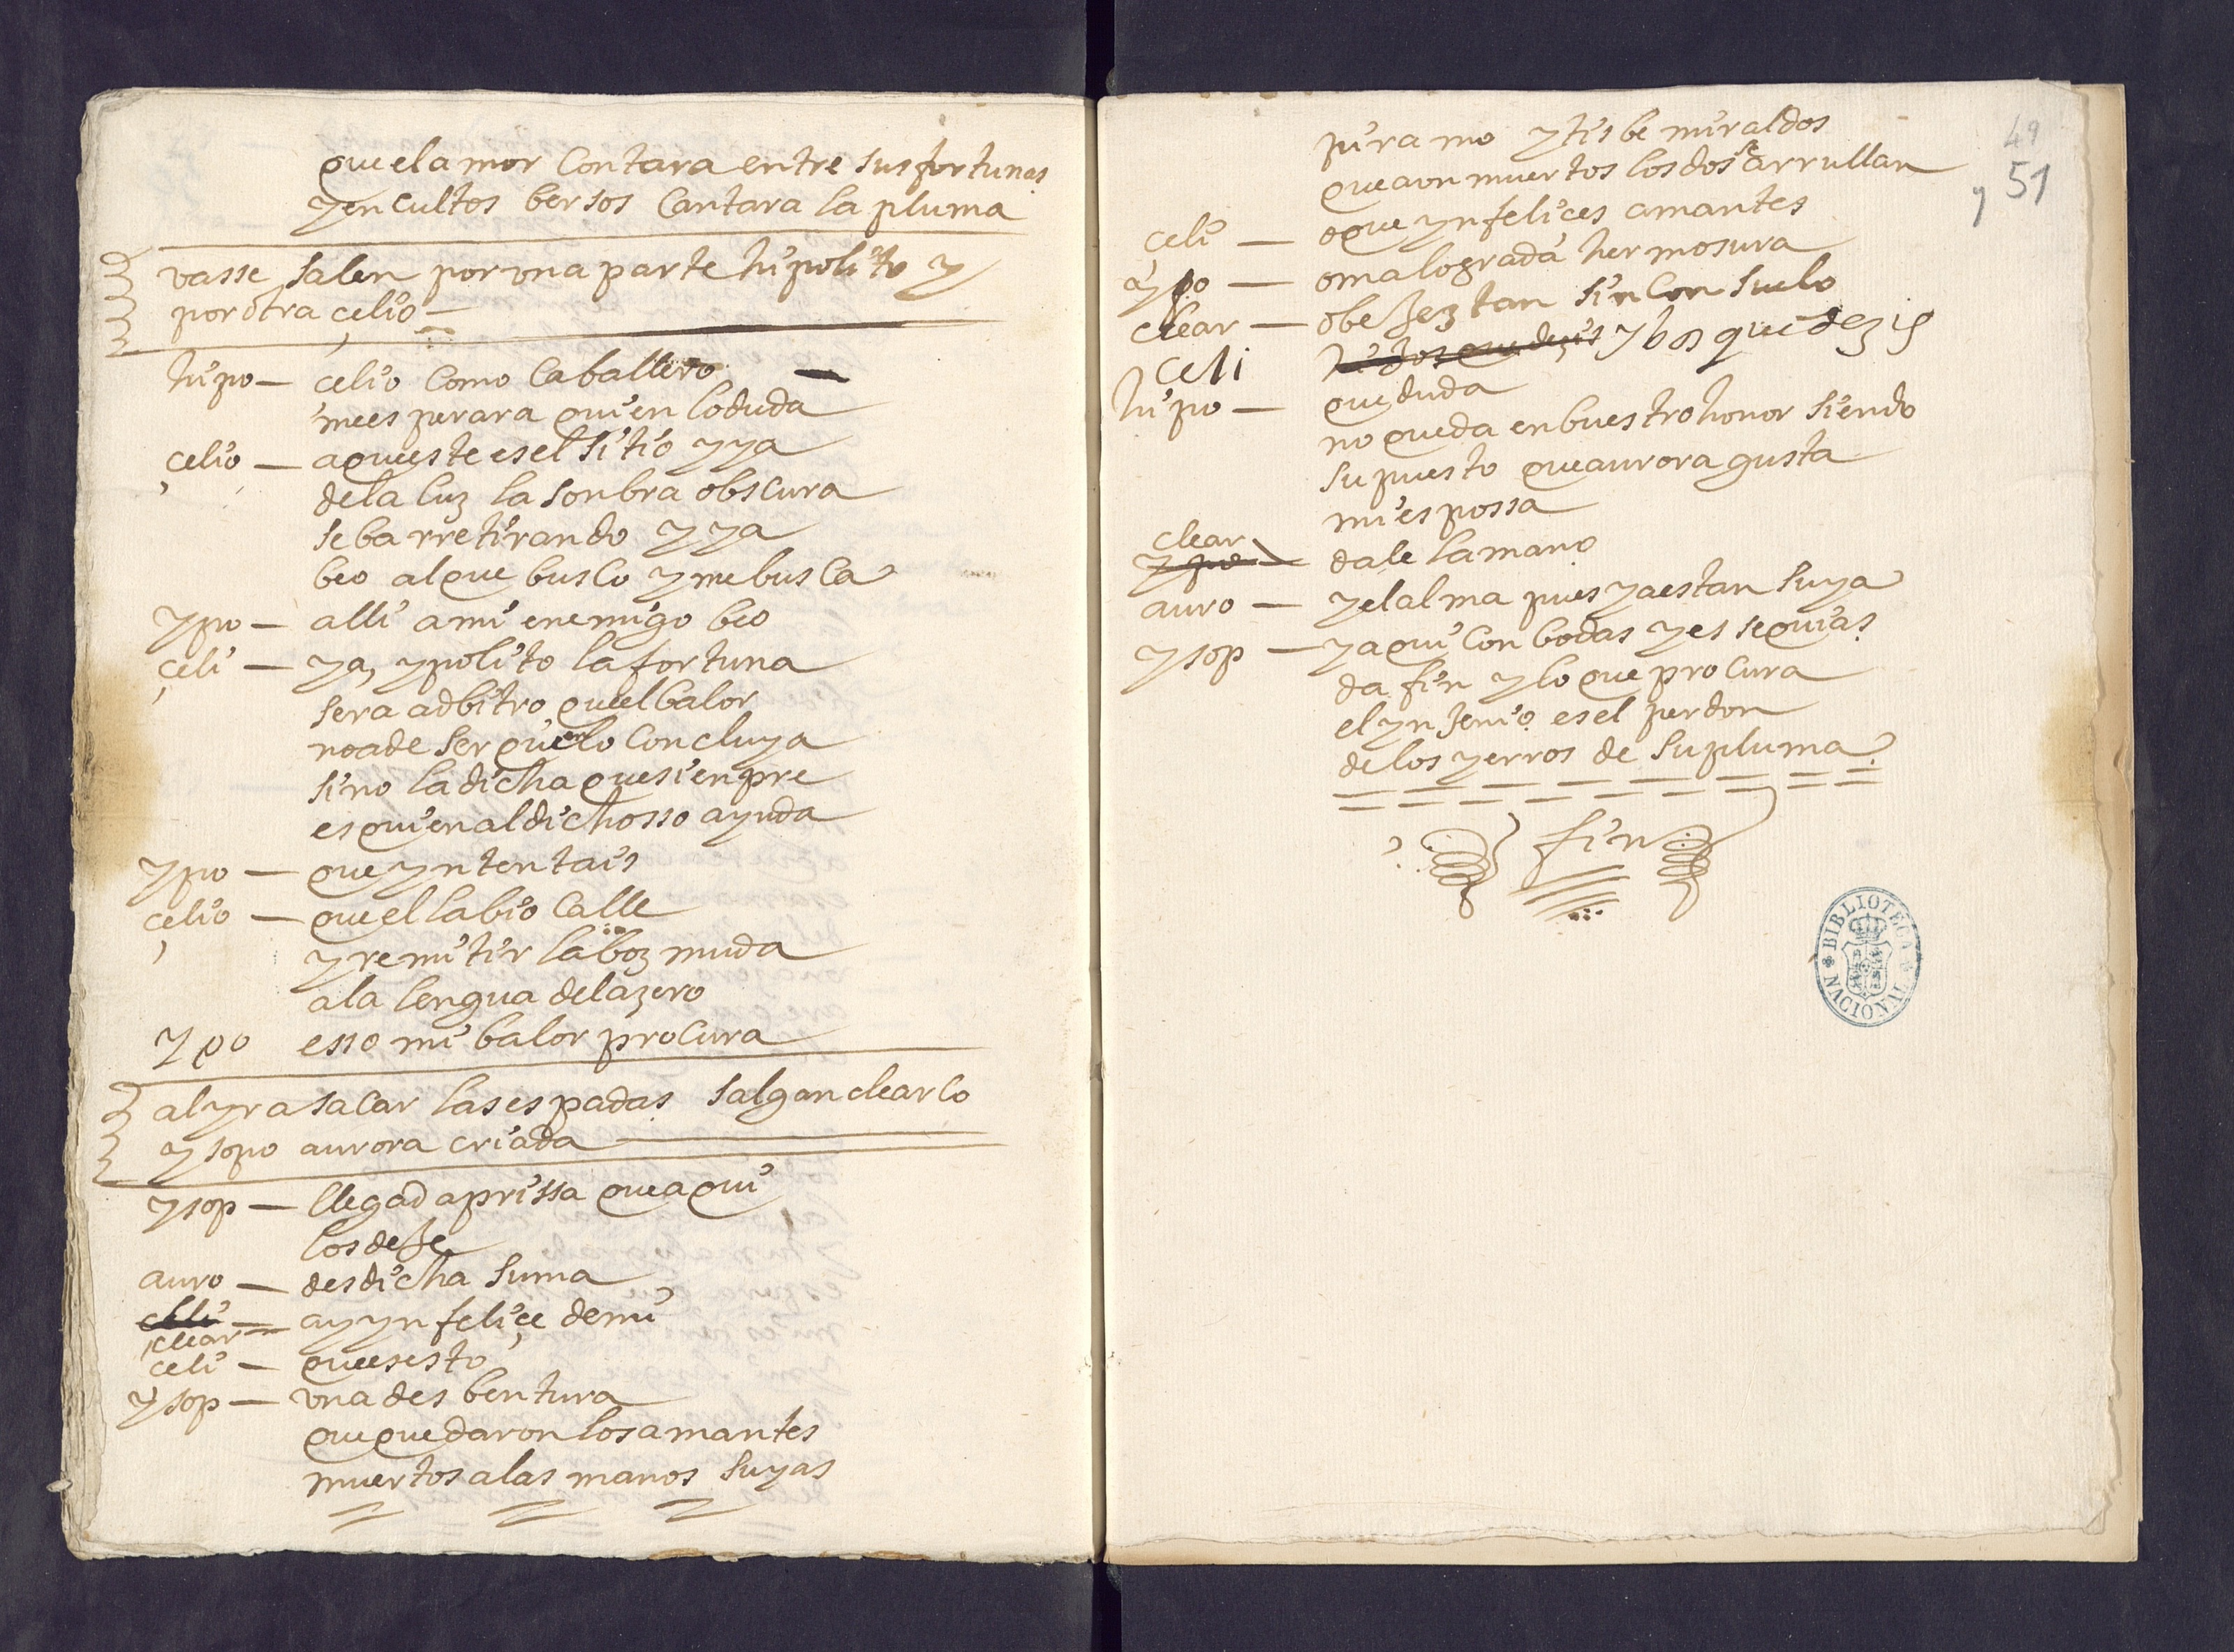 que el amor Contara entre sus fortunas
y en Cultos bersos Cantara la pluma
vasse salen por vna parte hipolito y
por otra çelio
hipo — celio Como Caballero
me esperara quien lo duda
çelio — aqueste es el sitio y ya
de la luz la sonbra obscura
se ba rretirando y ya
beo al que busco y me busca
ypo — alli a mi enemigo beo
çeli — ya, ypolito la fortuna
sera adbitro que el balor
no a de ser quien lo Concluya
sino la dicha que sienpre
es quien al dichosso ayuda
ypo — que yntentais
çelio — que el labio Calle
y remitir la boz muda
a la lengua del azero
ypo esso mi balor procura
al yr a sacar las espadas salgan clearco
ysopo aurora criada
ysop — llegad aprissa que aqui
los deje
auro — desdicha suma
celi
clear — ay ynfeliçe de mi
celi — que es esto
ysop — vna desbentura
que quedaron los amantes
muertos a las manos suyas
piramo y tisbe miraldos
que aun muertos los dos se arrullan
çeli — o que ynfelices amantes
ypo — o malograda hermosura
clear — o bejez tan sin Consuelo
Celi y bos que dezis
hipo — que duda
no queda en buestro honor siendo
supuesto que aurora gusta
mi espossa
clear
ypo — dale la mano
auro — y el alma pues ya estan suya
ysop — y aqui Con bodas y esequias
da fin y lo que procura
el ynjenio es el perdon
de los yerros de su pluma
fin
49
y 51
BIBLIOTECA NACIONAL